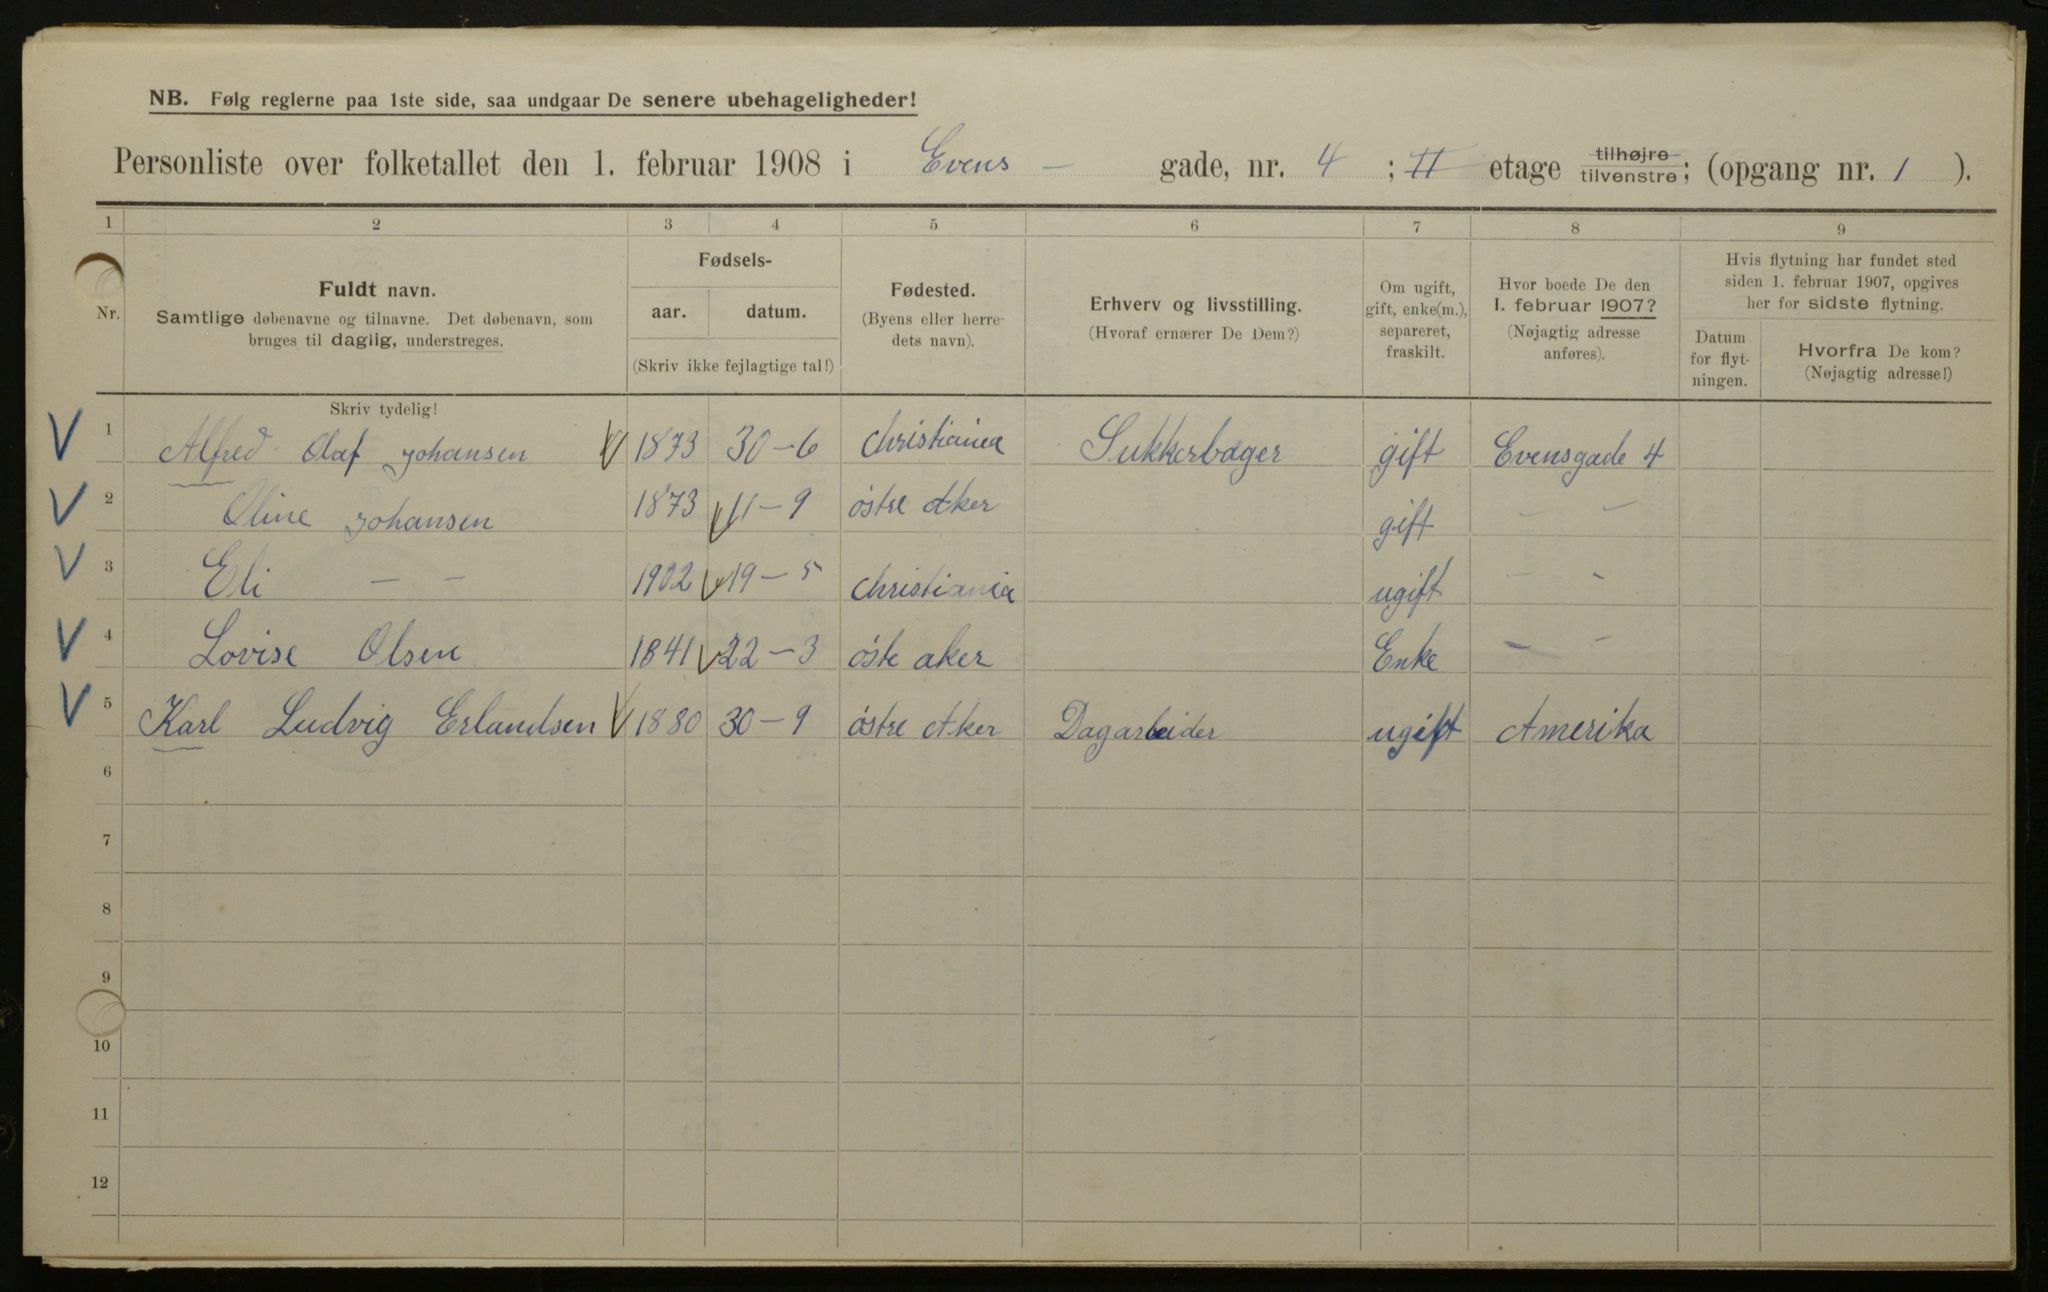 NB. Følg reglerne paa 1ste side, saa undgaar De senere ubehageligheder!
Personliste over folketallet den 1. februar 1908 i Evens — gade, nr. 4 ; II etage tilhøjre tilvenstre; (opgang nr. 1 ).
1 2 3 4 5 6 7 8 9
Nr.
Fuldt navn.
Samtlige døbenavne og tilnavne. Det døbenavn, som
bruges til daglig, understreges.
Skriv tydelig!
Fødsels-
aar. datum.
(Skriv ikke fejlagtige tal!)
Fødested.
(Byens eller herre-
dets navn).
Erhverv og livsstilling.
(Hvoraf ernærer De Dem?)
Om ugift,
gift, enke(m.),
separeret,
fraskilt.
Hvor boede De den
1. februar 1907?
(Nøjagtig adresse
anføres).
Hvis flytning har fundet sted
siden 1. februar 1907, opgives
her for sidste flytning.
Datum
for flyt-
ningen.
Hvorfra De kom?
(Nøjagtig adresse!)
V 1 Alfred Olaf Johansen V 1873 30-6 Christiania Sukkerbager gift Evensgade 4
V 2 Oline Johansen 1873 V 11-9 østre Aker gift — —
V 3 Eli — — 1902 V 19-5 Christiania ugift — —
V 4 Lovise Olsen 1841 V 22-3 øste aker Enke — —
V 5 Karl Ludvig Erlandsen V 1880 30-9 østre Aker Dagarbeider ugift Amerika
6
7
8
9
10
11
12